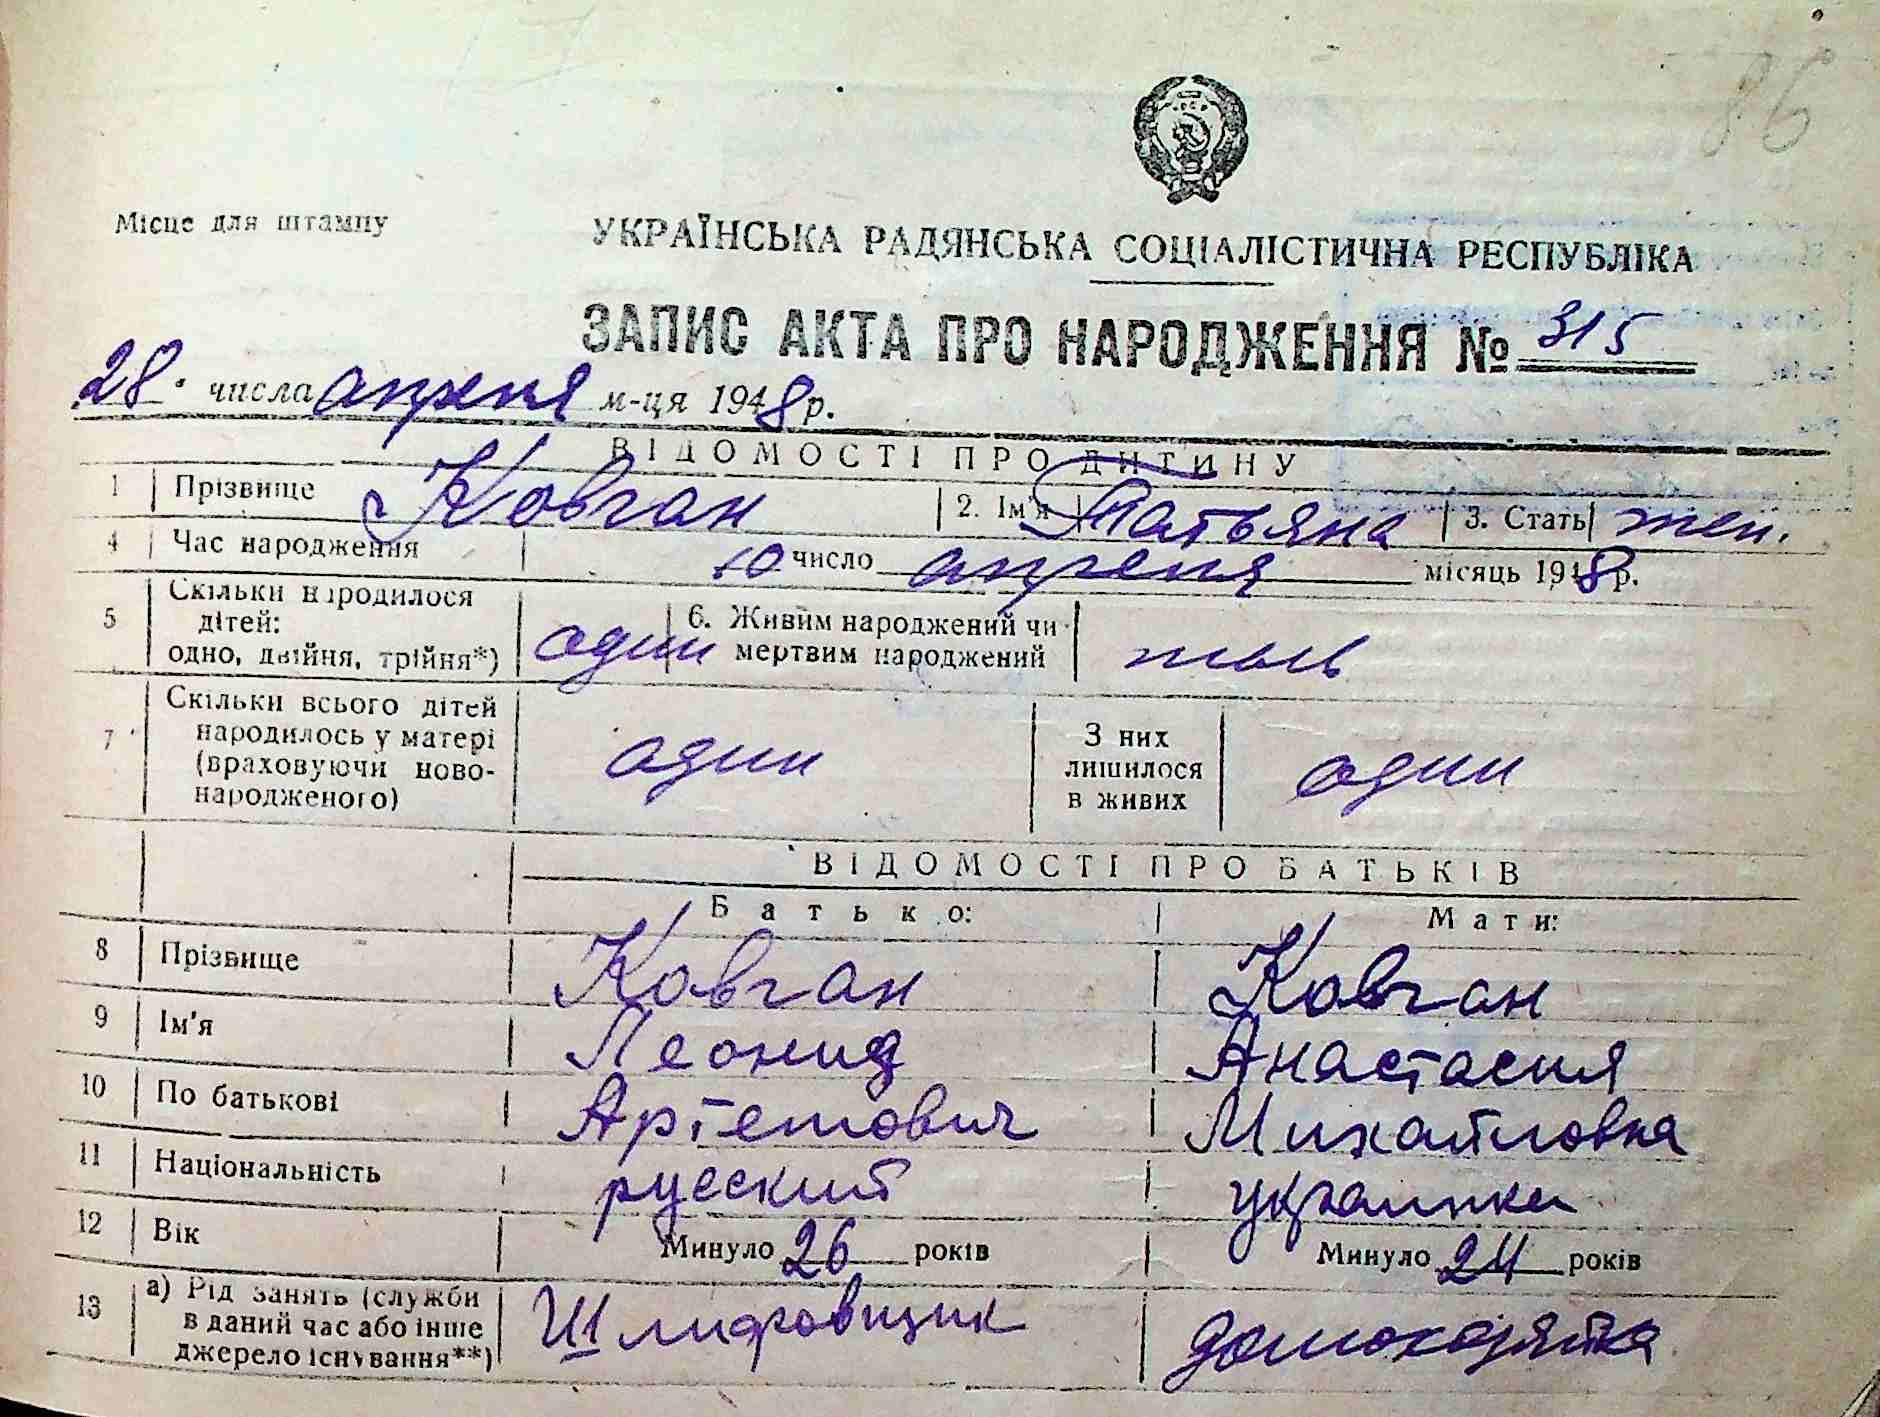 86
Місце для штампу
УКРАЇНСЬКА РАДЯНСЬКА СОЦІАЛІСТИЧНА РЕСПУБЛІКА
ЗАПИС АКТА ПРО НАРОДЖЕННЯ № 315
28 числа апреля м-ця 1948 р.
ВІДОМОСТІ ПРО ДИТИНУ
1 Прізвище Ковган 2. Ім'я Татьяна 3. Стать жен.
4 Час народження 10 число апреля місяць 1948 р.
5 Скільки народилося дітей: одно, двійня, трійня*) один 6. Живим народжений чи мертвим народжений
7 Скільки всього дітей народилось у матері (враховуючи ново-народженого) один З них лишилося в живих один
ВІДОМОСТІ ПРО БАТЬКІВ
Батько: Мати:
8 Прізвище Ковган Ковган
9 Ім'я Леонид Анастасия
10 По батькові Артемович Михайловна
11 Національність русский украинка
12 Вік Минуло 26 років Минуло 24 років
13 а) Рід занять (служби в даний час або інше джерело існування**) Шлифовщик домохозяйка